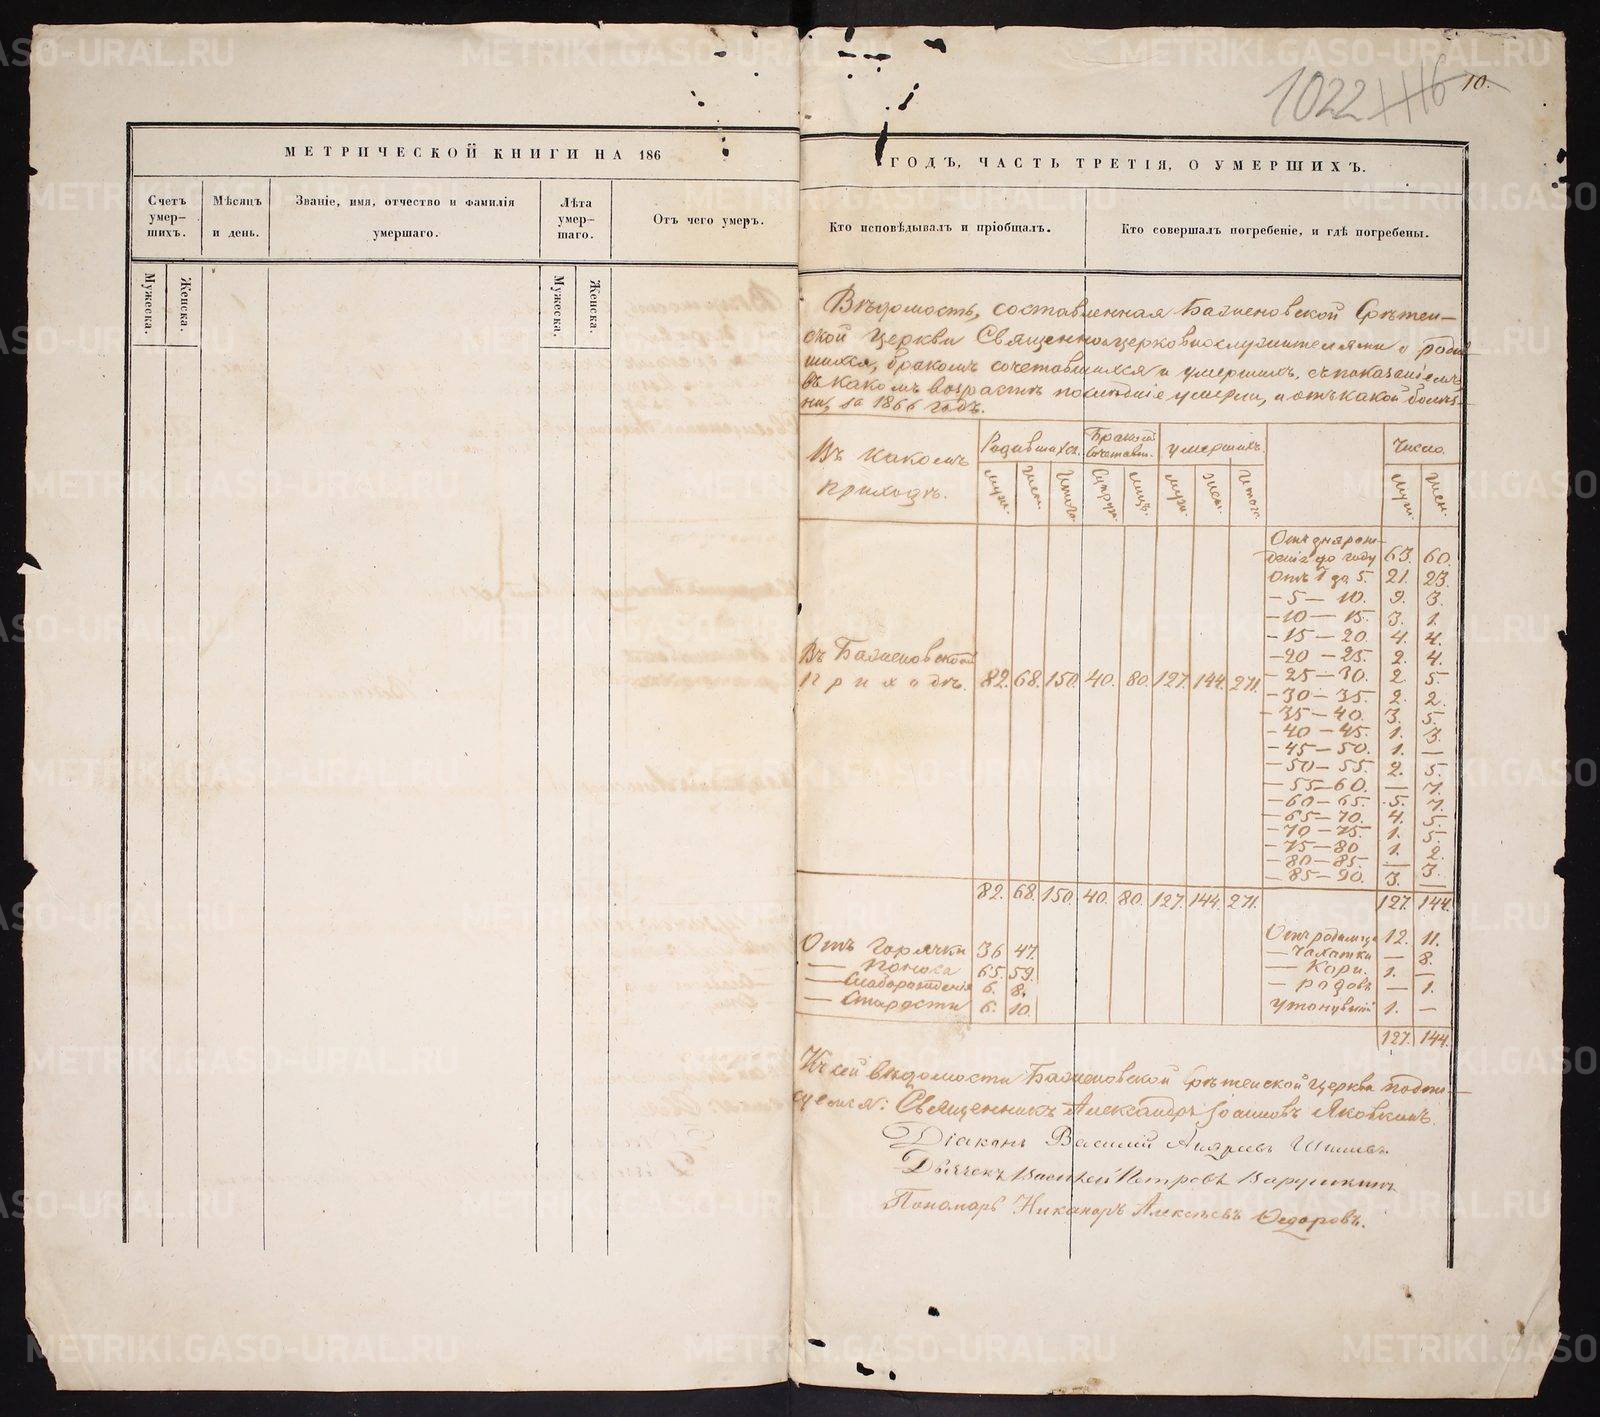 1022
10.
МЕТРИЧЕСКОЙ КНИГИ НА 186
ГОДЪ, ЧАСТЬ ТРЕТІЯ, О УМЕРШИХЪ.
Счетъ умер-шихъ.
Мѣсяцъ и день.
Званіе, имя, отчество и фамилія умершаго.
Лѣта умер-шаго.
Отъ чего умеръ.
Кто исповѣдывалъ и пріобщалъ.
Кто совершалъ погребеніе, и гдѣ погребены.
Мужеска.
Женска.
Мужеска.
Женска.
Вѣдомость, составленная Баженовской Срѣтен-
ской Церкви Священноцерковнослужителями о роди
шихся, бракомъ сочетавшихся и умершихъ, съ показаніемъ
въ какомъ возрастѣ послѣдніе умерли, и отъ какой болѣз-
ни, за 1866 годъ.
Въ какомъ приходѣ.
Родившихся.
Бракомъ сочетавш.
умершихъ.
Число
муж. жен. Итого. Супруж. лицъ. муж. жен. Итого. муж. жен.
Отъ дня рож-
денія до году 63. 60.
Отъ 1 до 5. 21. 23.
— 5 — 10. 9. 3.
— 10 — 15. 3. 1.
— 15 — 20. 4. 4.
— 20 — 25. 2. 4.
Въ Баженовской
Приходѣ. 82. 68. 150. 40. 80. 127. 144. 271.
— 25 — 30. 2. 5.
— 30 — 35. 2. 2.
— 35 — 40. 3. 5.
— 40 — 45. 1. 3.
— 45 — 50. 1. —
— 50 — 55. 2. 5.
— 55 — 60. — 7.
— 60 — 65. 5. 7.
— 65 — 70. 4. 5.
— 70 — 75. 1. 5.
— 75 — 80 1. 2.
— 80 — 85. — 3.
— 85 — 90. 3. —
82. 68. 150. 40. 80. 127. 144. 271. 127. 144.
Отъ горячки 36 47.
— поноса 65. 59.
— Слаборожденія 6. 8.
— Старости 6. 10.
Отъ родимца 12. 11.
— Чахотки — 8.
— Кори. 1. —
— родовъ — 1.
утонувшій 1. —
127. 144.
Къ сей вѣдомости Баженовской Срѣтенской Церкви подпи-
суемся: Священникъ Александръ Іоанновъ Яковкинъ.
Діаконъ Василій
Дьячекъ Василей Петровъ
Пономарь Никаноръ Алексѣевъ Ѳедоровъ.
METRIKI.GASO-URAL.RU